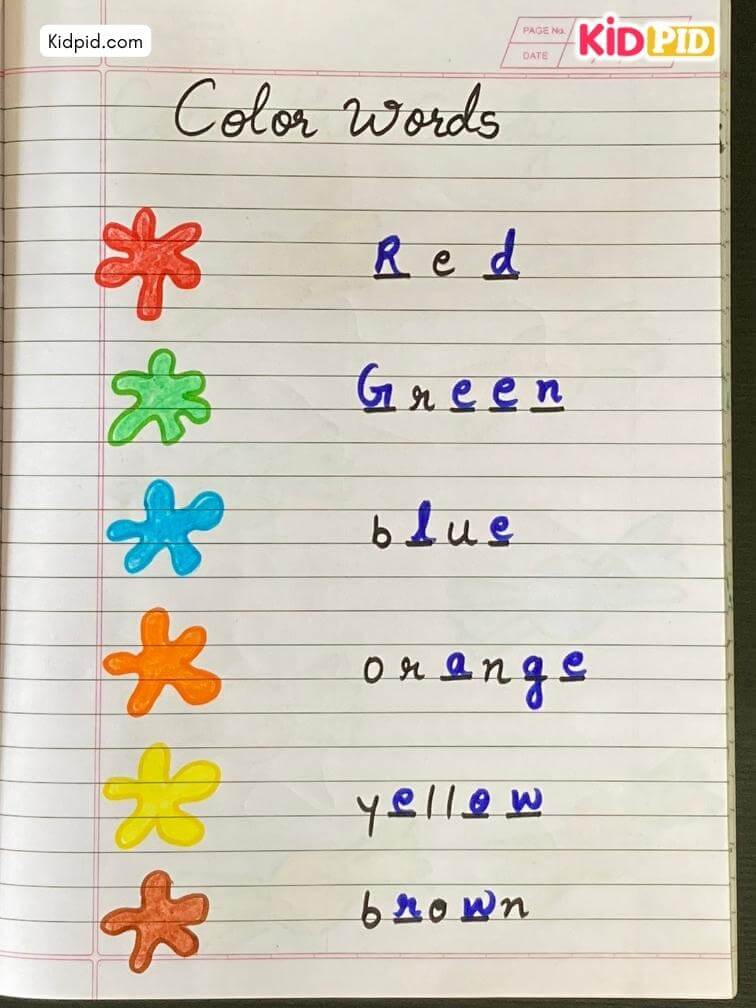 Kidpid.com
PAGE No.
DATE
KIDPID
Color Words
Red
Green
blue
orange
yellow
brown